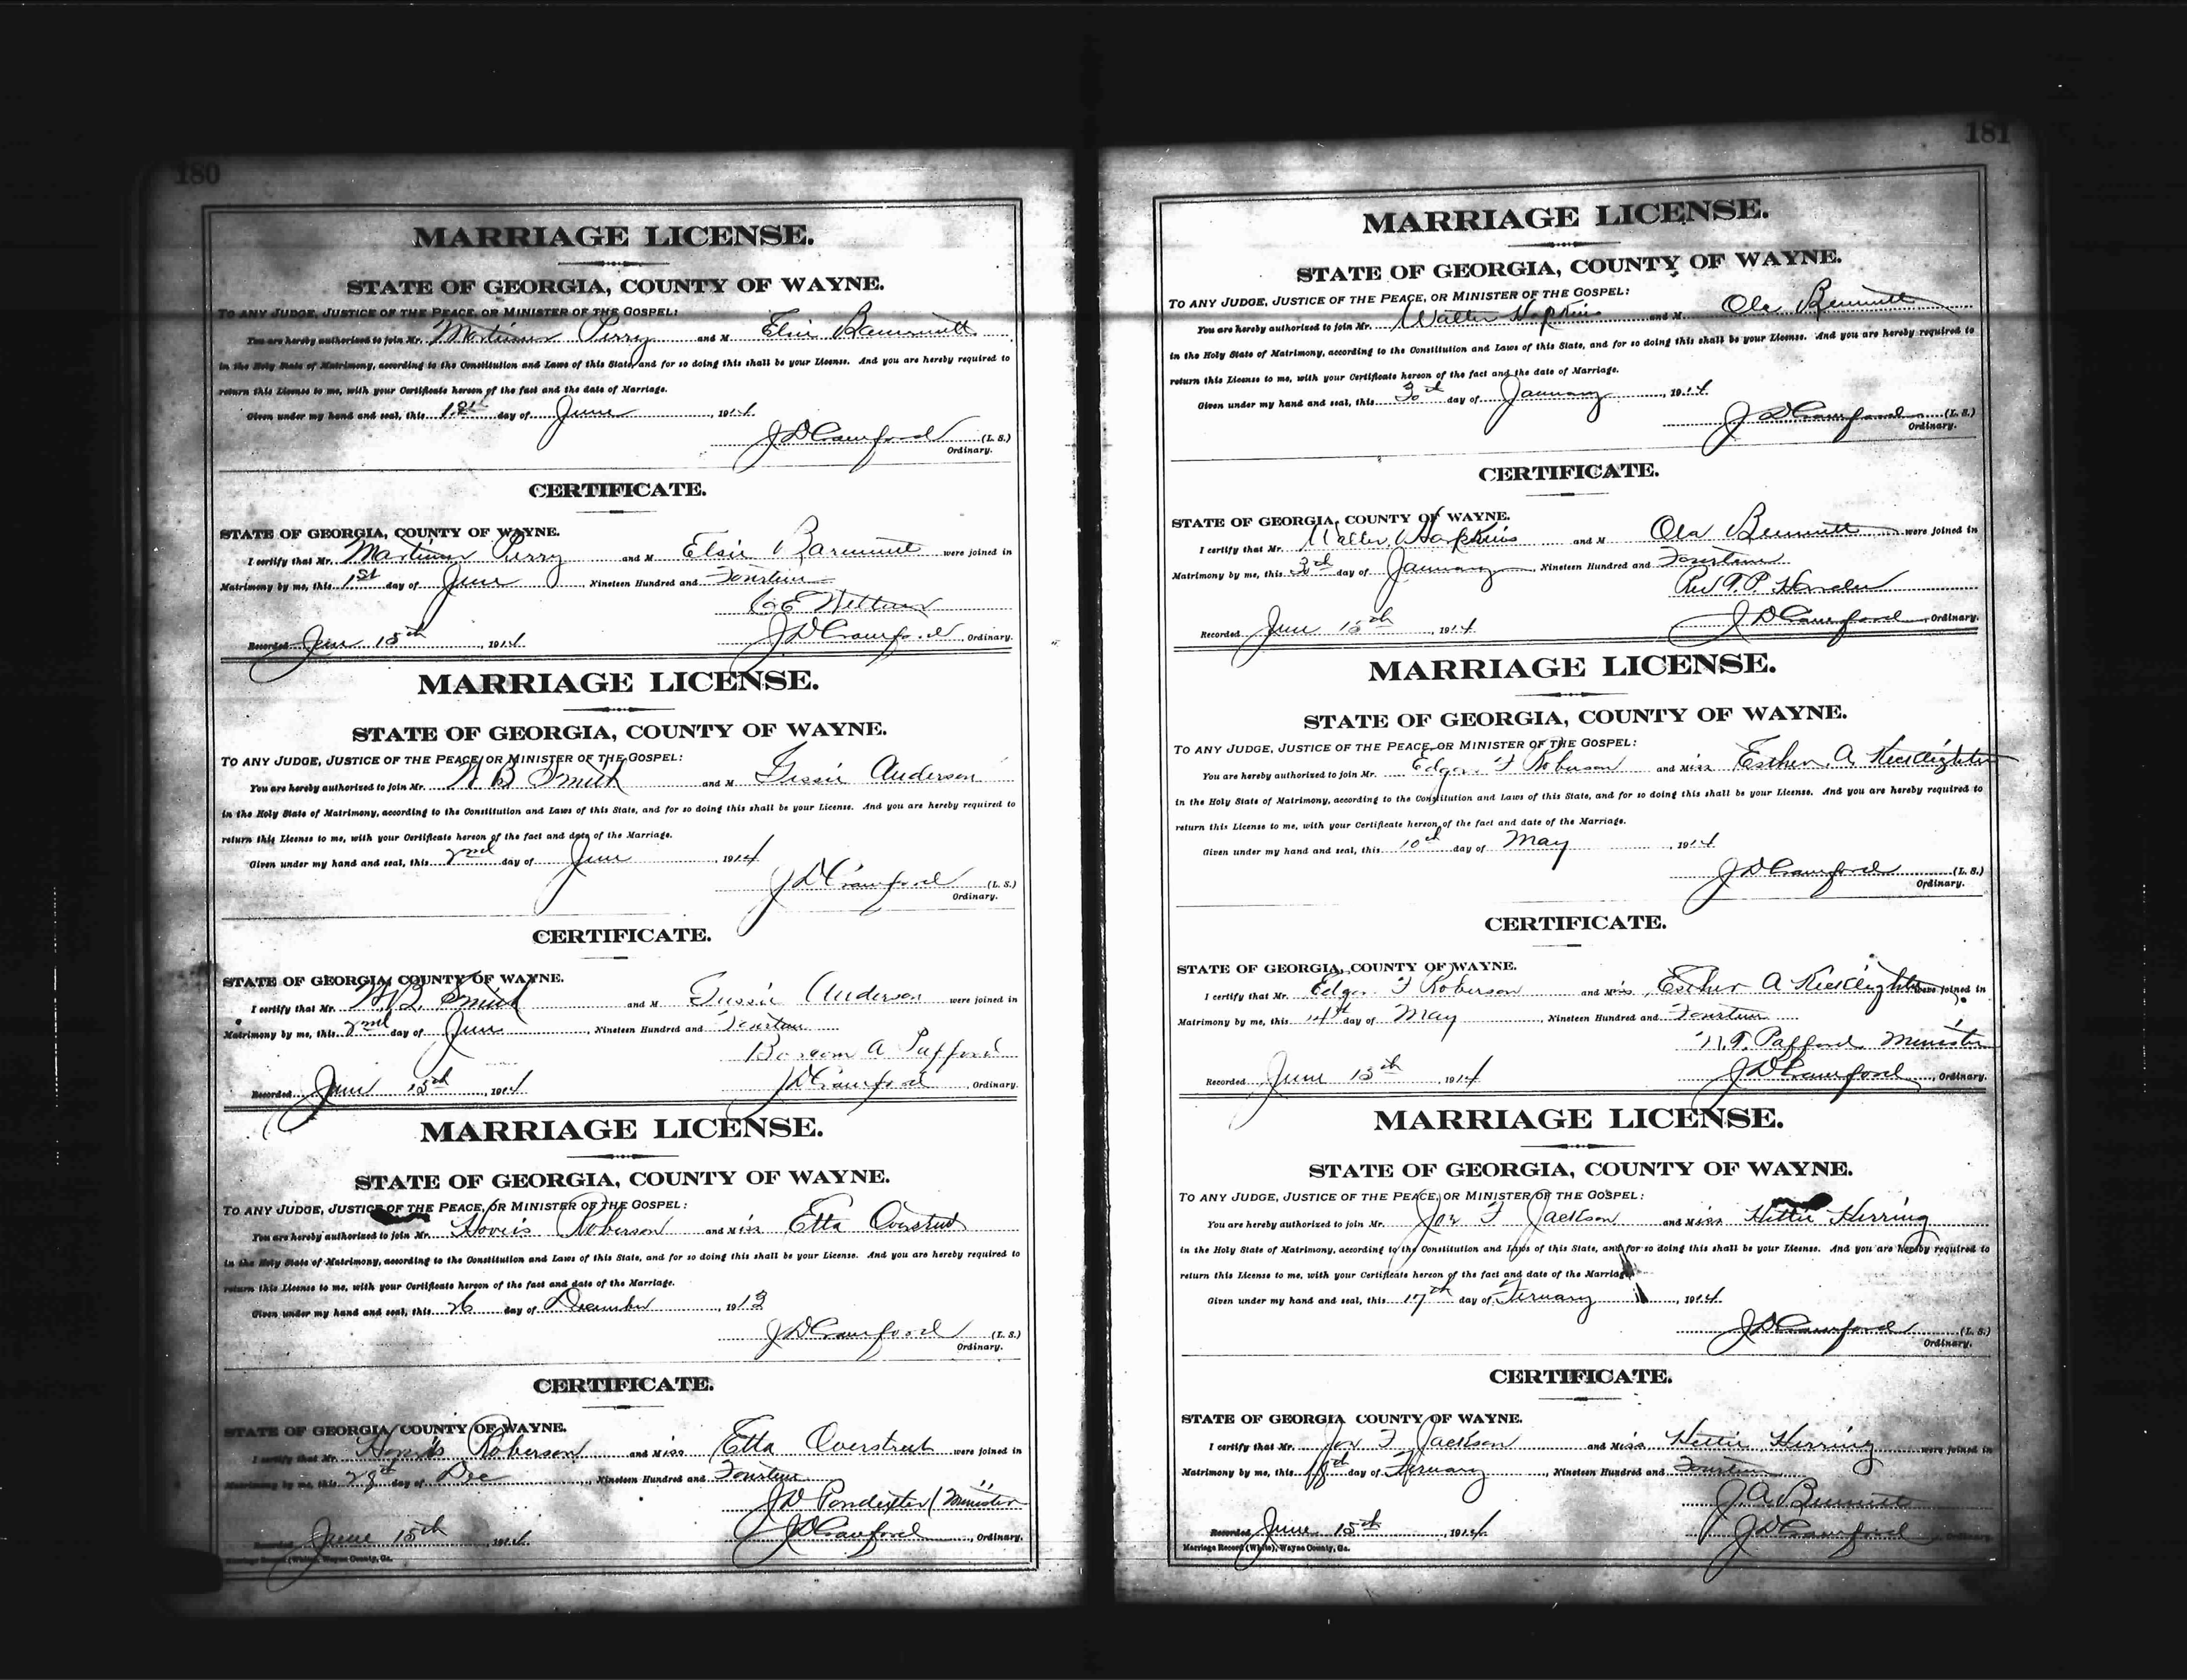 180
MARRIAGE LICENSE.
STATE OF GEORGIA, COUNTY OF WAYNE.
TO ANY JUDGE, JUSTICE OF THE PEACE, OR MINISTER OF THE GOSPEL:
You are hereby authorized to join Mr. Perry and M Elsie
in the Holy State of Matrimony, according to the Constitution and Laws of this State, and for so doing this shall be your License. And you are hereby required to
return this License to me, with your Certificate hereon of the fact and the date of Marriage.
Given under my hand and seal, this 1st day of June, 1914
J D Crawford (L. S.)
Ordinary.
CERTIFICATE.
STATE OF GEORGIA, COUNTY OF WAYNE.
I certify that Mr. Perry and M Elsie were joined in
Matrimony by me, this 1st day of June, Nineteen Hundred and Fourteen
J D Crawford, Ordinary.
Recorded June 15th, 1914
MARRIAGE LICENSE.
STATE OF GEORGIA, COUNTY OF WAYNE.
TO ANY JUDGE, JUSTICE OF THE PEACE, OR MINISTER OF THE GOSPEL:
You are hereby authorized to join Mr. B Smith and M Anderson
in the Holy State of Matrimony, according to the Constitution and Laws of this State, and for so doing this shall be your License. And you are hereby required to
return this License to me, with your Certificate hereon of the fact and date of the Marriage.
Given under my hand and seal, this 2nd day of June, 1914
J D Crawford (L. S.)
Ordinary.
CERTIFICATE.
STATE OF GEORGIA, COUNTY OF WAYNE.
I certify that Mr. B. Smith and M Anderson were joined in
Matrimony by me, this 2nd day of June, Nineteen Hundred and Fourteen
A Pafford
Recorded June 15th, 1914 J D Crawford, Ordinary.
MARRIAGE LICENSE.
STATE OF GEORGIA, COUNTY OF WAYNE.
TO ANY JUDGE, JUSTICE OF THE PEACE, OR MINISTER OF THE GOSPEL:
You are hereby authorized to join Mr. Roberson and Miss Etta Overstreet
in the Holy State of Matrimony, according to the Constitution and Laws of this State, and for so doing this shall be your License. And you are hereby required to
return this License to me, with your Certificate hereon of the fact and date of the Marriage.
Given under my hand and seal, this 26 day of December, 1913
J D Crawford (L. S.)
Ordinary.
CERTIFICATE.
STATE OF GEORGIA, COUNTY OF WAYNE.
I certify that Mr. Roberson and Miss Etta Overstreet were joined in
Matrimony by me, this day of Dec, Nineteen Hundred and Fourteen
J D Pondexter, Minister
Recorded June 15th, 1914 J D Crawford, Ordinary.
Marriage Record (White), Wayne County, Ga.
181
MARRIAGE LICENSE.
STATE OF GEORGIA, COUNTY OF WAYNE.
TO ANY JUDGE, JUSTICE OF THE PEACE, OR MINISTER OF THE GOSPEL:
You are hereby authorized to join Mr. Walter Hopkins and M Ola Bennett
in the Holy State of Matrimony, according to the Constitution and Laws of this State, and for so doing this shall be your License. And you are hereby required to
return this License to me, with your Certificate hereon of the fact and the date of Marriage.
Given under my hand and seal, this day of January, 1914
J D Crawford (L. S.)
Ordinary.
CERTIFICATE.
STATE OF GEORGIA, COUNTY OF WAYNE.
I certify that Mr. Walter Hopkins and M Ola Bennett were joined in
Matrimony by me, this day of January, Nineteen Hundred and Fourteen
Rev
Recorded June 15th, 1914 J D Crawford, Ordinary.
MARRIAGE LICENSE.
STATE OF GEORGIA, COUNTY OF WAYNE.
TO ANY JUDGE, JUSTICE OF THE PEACE, OR MINISTER OF THE GOSPEL:
You are hereby authorized to join Mr. Edgar F Roberson and Miss Esther A Keedlighter
in the Holy State of Matrimony, according to the Constitution and Laws of this State, and for so doing this shall be your License. And you are hereby required to
return this License to me, with your Certificate hereon of the fact and date of the Marriage.
Given under my hand and seal, this 10th day of May, 1914
J D Crawford (L. S.)
Ordinary.
CERTIFICATE.
STATE OF GEORGIA, COUNTY OF WAYNE.
I certify that Mr. Edgar F Roberson and Miss Esther A were joined in
Matrimony by me, this 14th day of May, Nineteen Hundred and Fourteen
Pafford Minister
Recorded June 15th, 1914 J D Crawford, Ordinary.
MARRIAGE LICENSE.
STATE OF GEORGIA, COUNTY OF WAYNE.
TO ANY JUDGE, JUSTICE OF THE PEACE, OR MINISTER OF THE GOSPEL:
You are hereby authorized to join Mr. Joe F Jackson and Miss Hettie Herring
in the Holy State of Matrimony, according to the Constitution and Laws of this State, and for so doing this shall be your License. And you are hereby required to
return this License to me, with your Certificate hereon of the fact and date of the Marriage.
Given under my hand and seal, this 17th day of Feruary, 1914
J D Crawford (L. S.)
Ordinary.
CERTIFICATE.
STATE OF GEORGIA COUNTY OF WAYNE.
I certify that Mr. Joe F Jackson and Miss Hettie Herring were joined in
Matrimony by me, this 18th day of Feruary, Nineteen Hundred and Fourteen
J. A. Bennett
Recorded June 15th, 1914 J D Crawford, Ordinary.
Marriage Record (White), Wayne County, Ga.